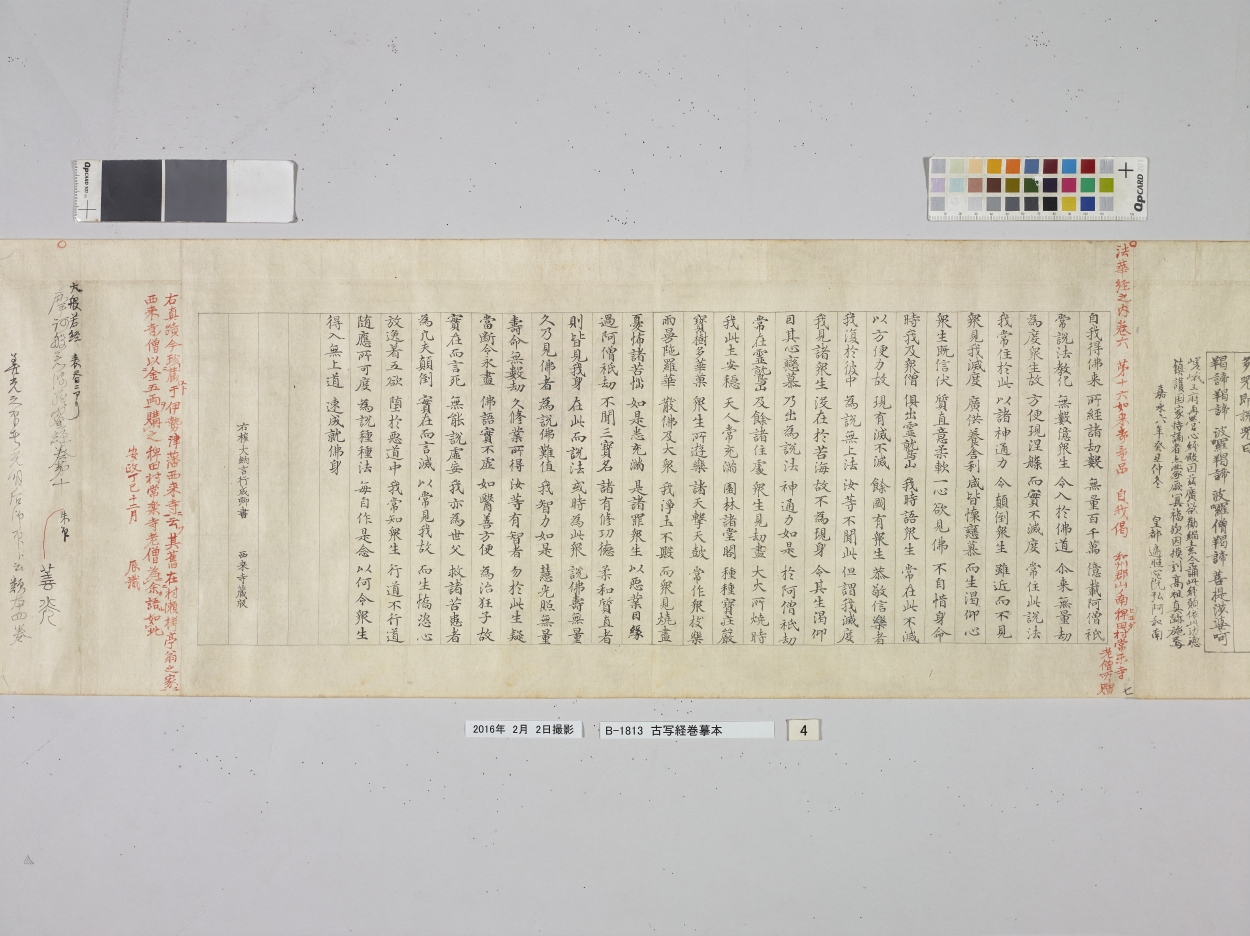 多呪即説呪曰
羯諦羯諦 波羅羯諦 波羅僧羯諦 菩提薩婆呵
嘉永六年癸丑仲冬
法華経之内巻六 第十六如来寿量品 自我偈 和州郡山南稗田村常楽寺
老僧所贈
七
自我得佛来 所經諸劫數 無量百千萬 億載阿僧祇
常説法教化 無數億衆生 令入於佛道 尒来無量劫
為度衆生故 方便現涅槃 而實不滅度 常住此説法
我常住於此 以諸神通力 令顛倒衆生 雖近而不見
衆見我滅度 廣供養舎利 咸皆懐戀慕 而生渇仰心
衆生既信伏 質直意柔軟 一心欲見佛 不自惜身命
時我及衆僧 俱出霊鷲山 我時語衆生 常在此不滅
以方便力故 現有滅不滅 餘國有衆生 恭敬信樂者
我復於彼中 為説無上法 汝等不聞此 但謂我滅度
我見諸衆生 没在於苦海 故不為現身 令其生渇仰
因其心戀慕 乃出為説法 神通力如是 於阿僧祇劫
常在霊鷲山 及餘諸住處 衆生見劫盡 大火所焼時
我此土安穏 天人常充満 園林諸堂閣 種種寶荘嚴
寶樹多華菓 衆生所遊樂 諸天撃天鼓 常作衆伎樂
雨曼陀羅華 散佛及大衆 我淨土不毀 而衆見焼盡
憂怖諸苦惱 如是悉充満 是諸罪衆生 以悪業因縁
過阿僧祇劫 不聞三寶名 諸有修功德 柔和質直者
則皆見我身 在此而説法 或時為此衆 説佛壽無量
久乃見佛者 為説佛難値 我智力如是 慧光照無量
壽命無數劫 久修業所得 汝等有智者 勿於此生疑
當断令永盡 佛語實不虚 如醫善方便 為治狂子故
實在而言死 無能説虚妄 我亦為世父 救諸苦患者
為凡夫顛倒 實在而言滅 以常見我故 而生憍恣心
放逸著五欲 墮於悪道中 我常知衆生 行道不行道
随應所可度 為説種種法 毎自作是念 以何令衆生
得入無上道 速成就佛身
右権大納言行成卿書 西来寺蔵版
右真蹟今珍蔵于伊勢津藩西来寺云其舊在村瀬栲亭翁之家
西来寺僧以金五両購之稗田村常楽寺老僧為余語如此
安政丁巳十二月 辰識
大般若経
B-1813 古写経巻摹本
2016年 2月 2日撮影
4
QPCARD
QPCARD 201